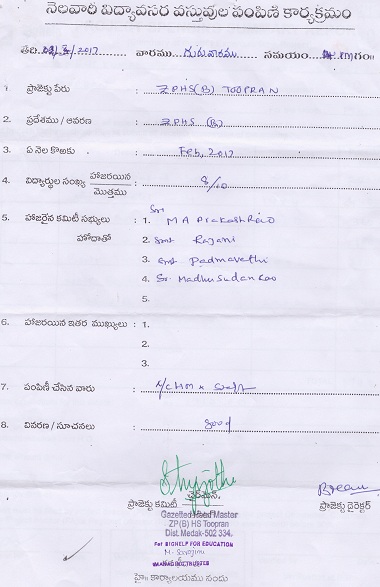 నెలవారి విద్యావసర వస్తువుల పంపిణి కార్యక్రమం
తేది. 02/3/2017 వారము గురువారము సమయం
1. ప్రాజెక్టు పేరు : ZPHS(B) TOOPRAN
2. ప్రదేశము / ఆవరణ : ZPHS (B)
3. ఏ నెల కొఱకు : Feb, 2017
4. విద్యార్థుల సంఖ్య హాజరయిన / మొత్తము : 8/10
5. హాజరైన కమిటీ సభ్యులు : 1. Sri M A Prakash Rao
హోదాతో 2. Smt Rajani
3. Smt Padmavathi
4. Sri Madhusudan Rao
5.
6. హాజరయిన ఇతర ముఖ్యులు : 1.
2.
3.
7. పంపిణీ చేసిన వారు :
8. వివరణ / సూచనలు : Good
ప్రాజెక్టు కమిటీ చైర్మన్, ప్రాజెక్టు డైరెక్టర్
Gazetted Head Master
ZP(B) HS Toopran
Dist. Medak-502 334.
For BIGHELP FOR EDUCATION
M. Sarojini
MANAGING TRUSTEE
హై॥ కార్యాలయము నందు